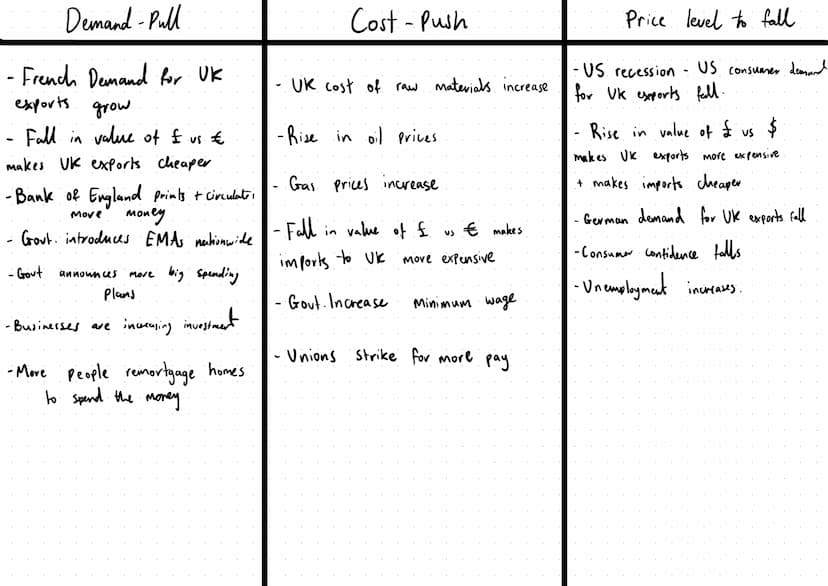 Demand-Pull
- French Demand for UK
exports grow
- Fall in value of £ vs €
makes UK exports cheaper
- Bank of England prints + circulates
more money
- Govt. introduces EMAs nationwide
- Govt announces more big spending
plans
- Businesses are increasing investment
- More people remortgage homes
to spend the money
Cost-Push
- UK cost of raw materials increase
- Rise in oil prices
- Gas prices increase
- Fall in value of £ vs € makes
imports to UK more expensive
- Govt. Increase minimum wage
- Unions strike for more pay
Price level to fall
- US recession - US consumer demand
for UK exports fall.
- Rise in value of £ vs $
makes UK exports more expensive
+ makes imports cheaper
- German demand for UK exports fall
- Consumer confidence falls
- Unemployment increases.